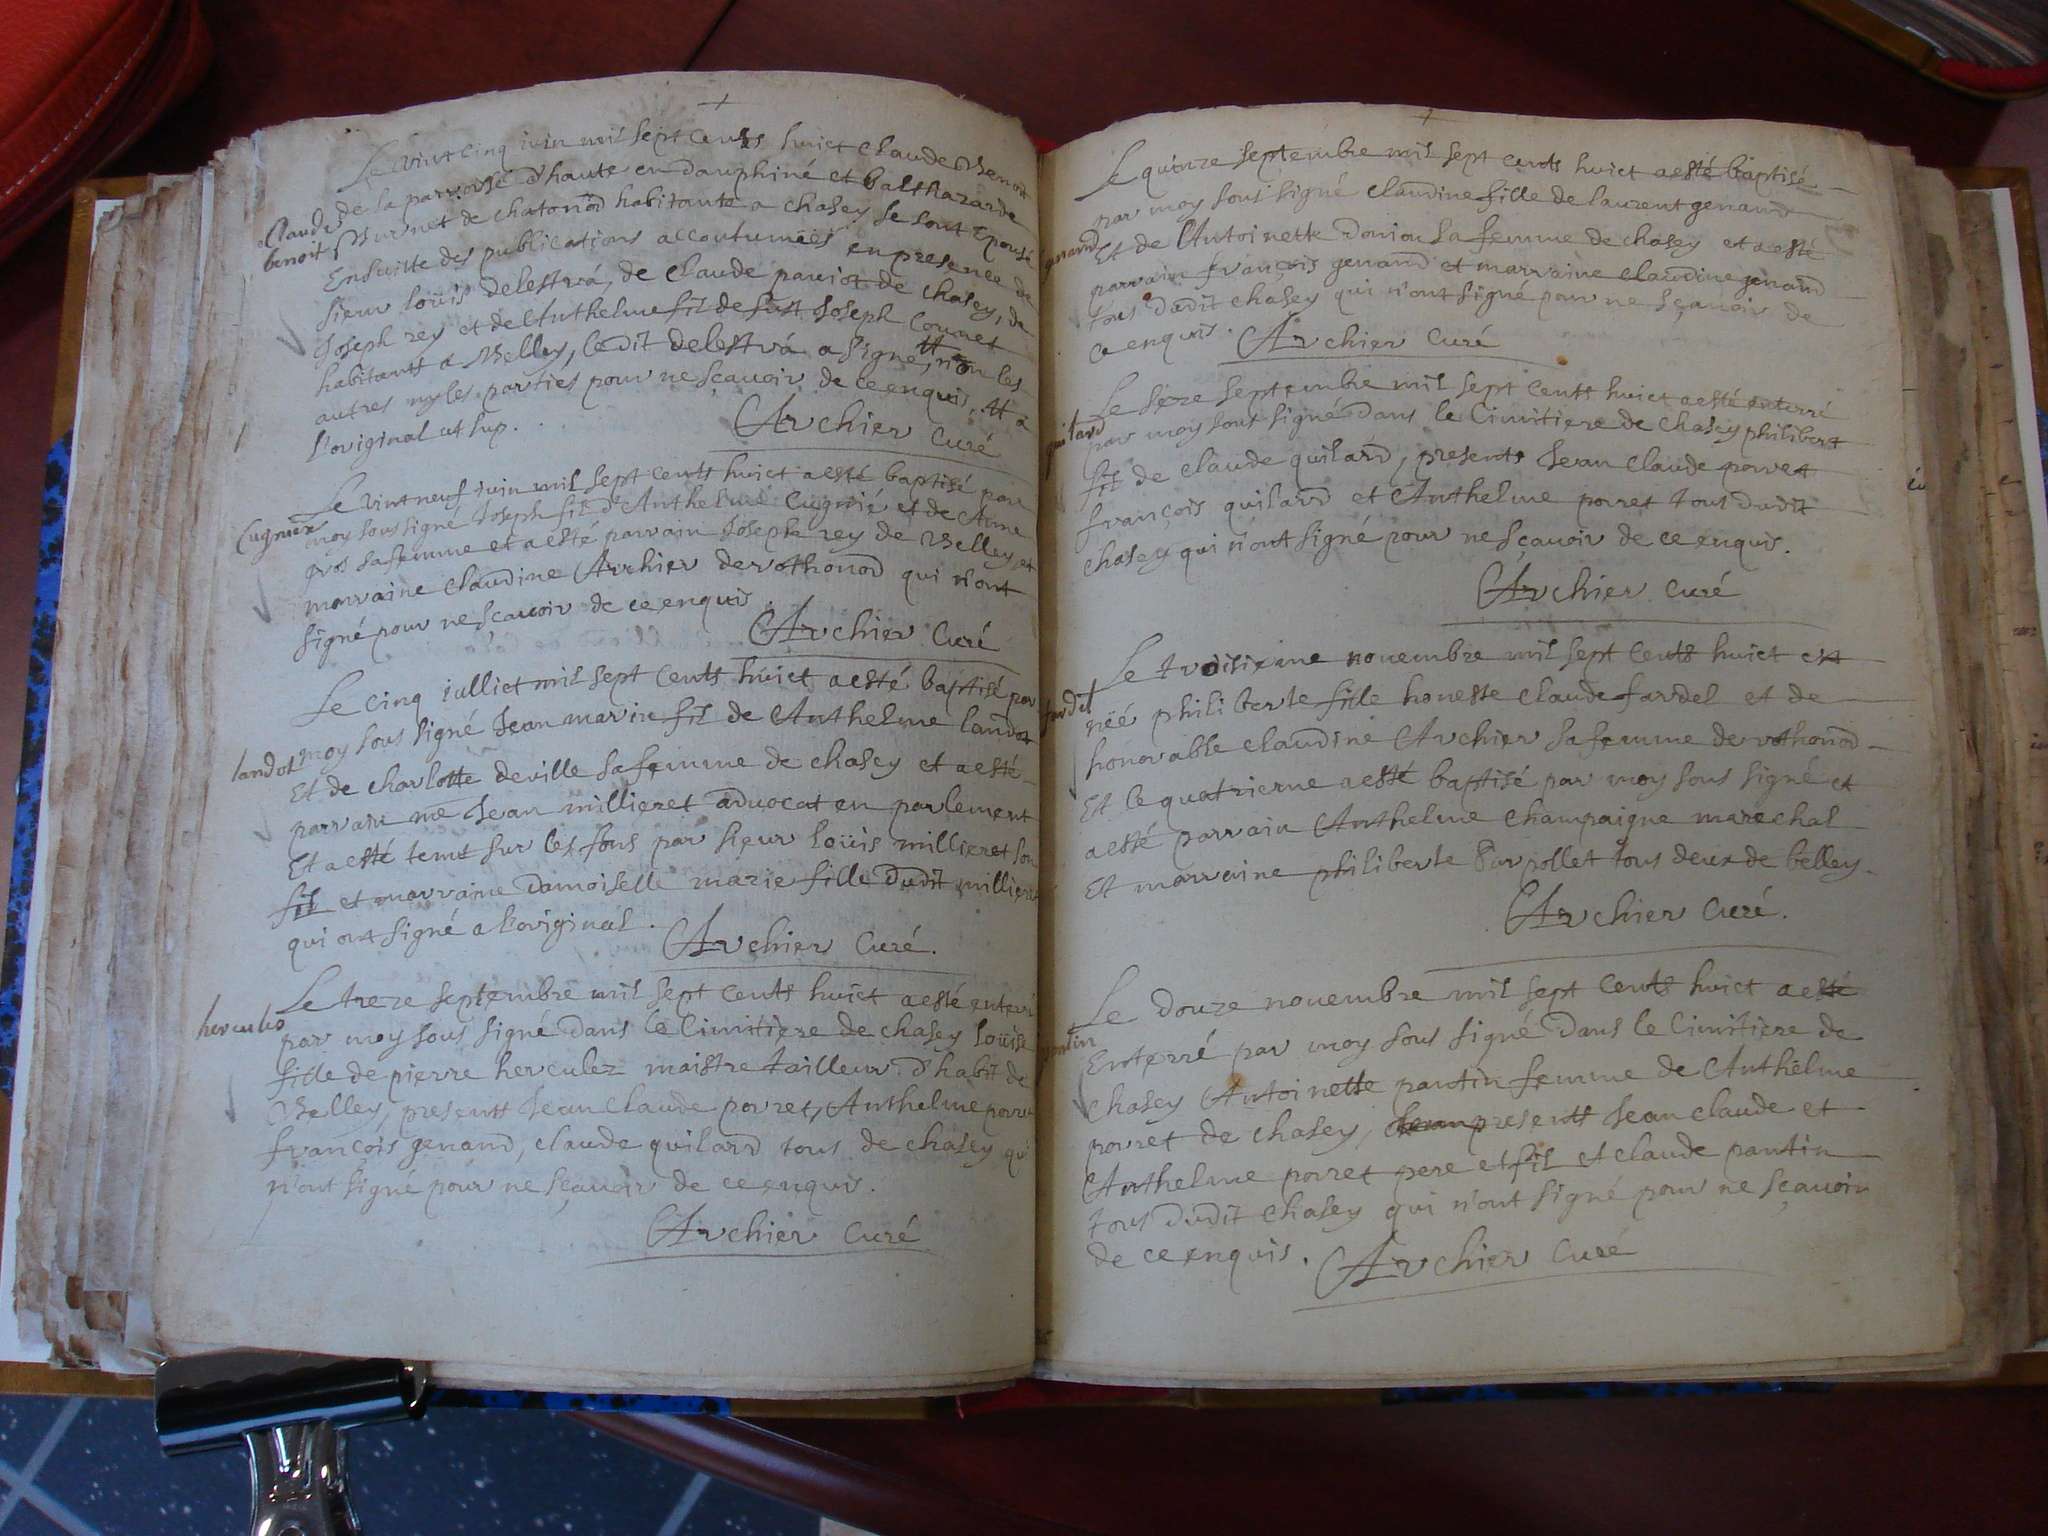 Le vint cinq iuin mil sept cents huict Claude Benoit
de la parroisse d'haute en dauphiné et balthazarde
Claude
benoit
Burnet de chatonod habitante a chasey se sont epousé
Ensuitte des publications accoutumëes en presence de
sieur loüis delestrá, de Claude pauiot de chasey, de
Joseph rey et de Anthelme fil de fust Joseph Cornet
habitants a Belley, ledit delestrá a signé, non les
autres ny les parties pour ne sçauoir de ce enquis. Et a
l'original ut sup.
Archier Curé
Le vint neuf iuin mil sept cents huict a esté baptisé par
Cugnier
moy sous signé Joseph fil d'Anthelme Cugnié et de Anne
gros sa femme et a esté parrain Joseph rey de Belley, et
marraine Claudine Archier de rothonod qui n'ont
signé pour ne sçauoir de ce enquis.
Archier Curé
Le cinq iulliet mil sept cents huict a esté baptisé par
landot
moy sous signé Jean marie fil de Anthelme landot
Et de charlotte deville sa femme de chasey et a esté
parrain me Jean millieret aduocat en parlement
Et a esté tenu sur les fons par sieur loüis millieret son
fil et marraine damoiselle marie fille dudit millieret
qui ont signé a l'original.
Archier Curé.
Le treze septembre mil sept cents huict a esté enterré
herculés
par moy sous signé dans le Cimitiere de chasey loüise
fille de pierre herculez maistre tailleur d'habit de
Belley, presents Jean Claude porret, Anthelme porret
françois genand, claude quilard tous de chasey qui
n'ont signé pour ne sçauoir de ce enquis.
Archier Curé
Le quinze septembre mil sept cents huict a esté baptisé
par moy sous signé claudine fille de laurent genand
genand
Et de Antoinette doniou sa femme de chasey et a esté
parrain françois genand et marraine claudine genand
tous dudit chasey qui n'ont signé pour ne sçauoir de
ce enquis.
Archier Curé
Le seze septembre mil sept cents huict a esté enterré
quilard
par moy sous signé dans le Cimitiere de chasey philibert
fil de claude quilard, presents Jean Claude porret
françois quilard et Anthelme porret tous dudit
chasey qui n'ont signé pour ne sçauoir de ce enquis.
Archier Curé
Le troisieme nouembre mil sept cents huict est
fardel
nëé philiberte fille honeste claude fardel et de
honorable claudine Archier sa femme de rothonod
Et le quatrieme a esté baptisé par moy sous signé et
a esté parrain Anthelme champaigne marechal
Et marraine philiberte Burrollet tous deux de belley.
Archier Curé.
Le douze nouembre mil sept cents huict a esté
pantin
Enterré par moy sous signé dans le Cimitiere de
chasey Antoinette pantin femme de Anthelme
porret de chasey, presents Jean claude et
Anthelme porret pere et fil et claude pantin
tous dudit chasey qui n'ont signé pour ne sçauoir
de ce enquis.
Archier Curé